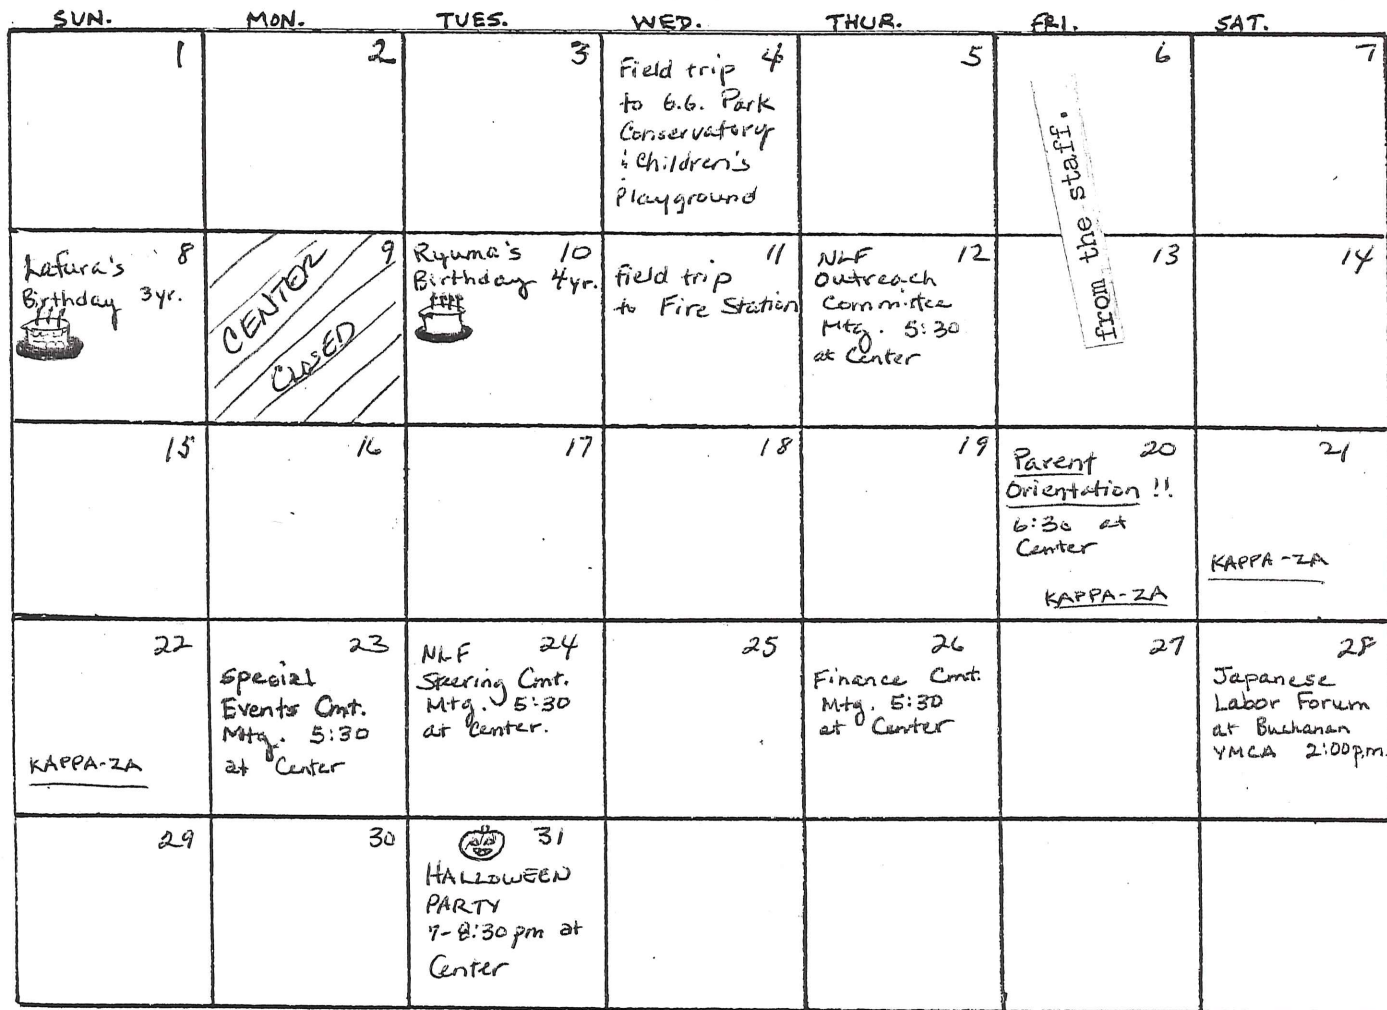 SUN. MON. TUES. WED. THUR. FRI. SAT.
1
2
3
4
Field trip
to G.G. Park
Conservatory
& Children's
Playground
5
6
from the staff.
7
8
Lafura's
Birthday 3yr.
9
CENTER
CLOSED
Ryuma's 10
Birthday 4yr.
11
field trip
to Fire Station
NLF 12
Outreach
Committee
Mtg. 5:30
at Center
13
14
15
16
17
18
19
Parent 20
Orientation !!
6:30 at
Center
KAPPA-ZA
21
KAPPA-ZA
22
KAPPA-ZA
23
Special
Events Cmt.
Mtg. 5:30
at Center
NLF 24
Steering Cmt.
Mtg. 5:30
at Center.
25
26
Finance Cmt.
Mtg. 5:30
at Center
27
28
Japanese
Labor Forum
at Buchanan
YMCA 2:00p.m.
29
30
31
HALLOWEEN
PARTY
7-8:30 pm at
Center